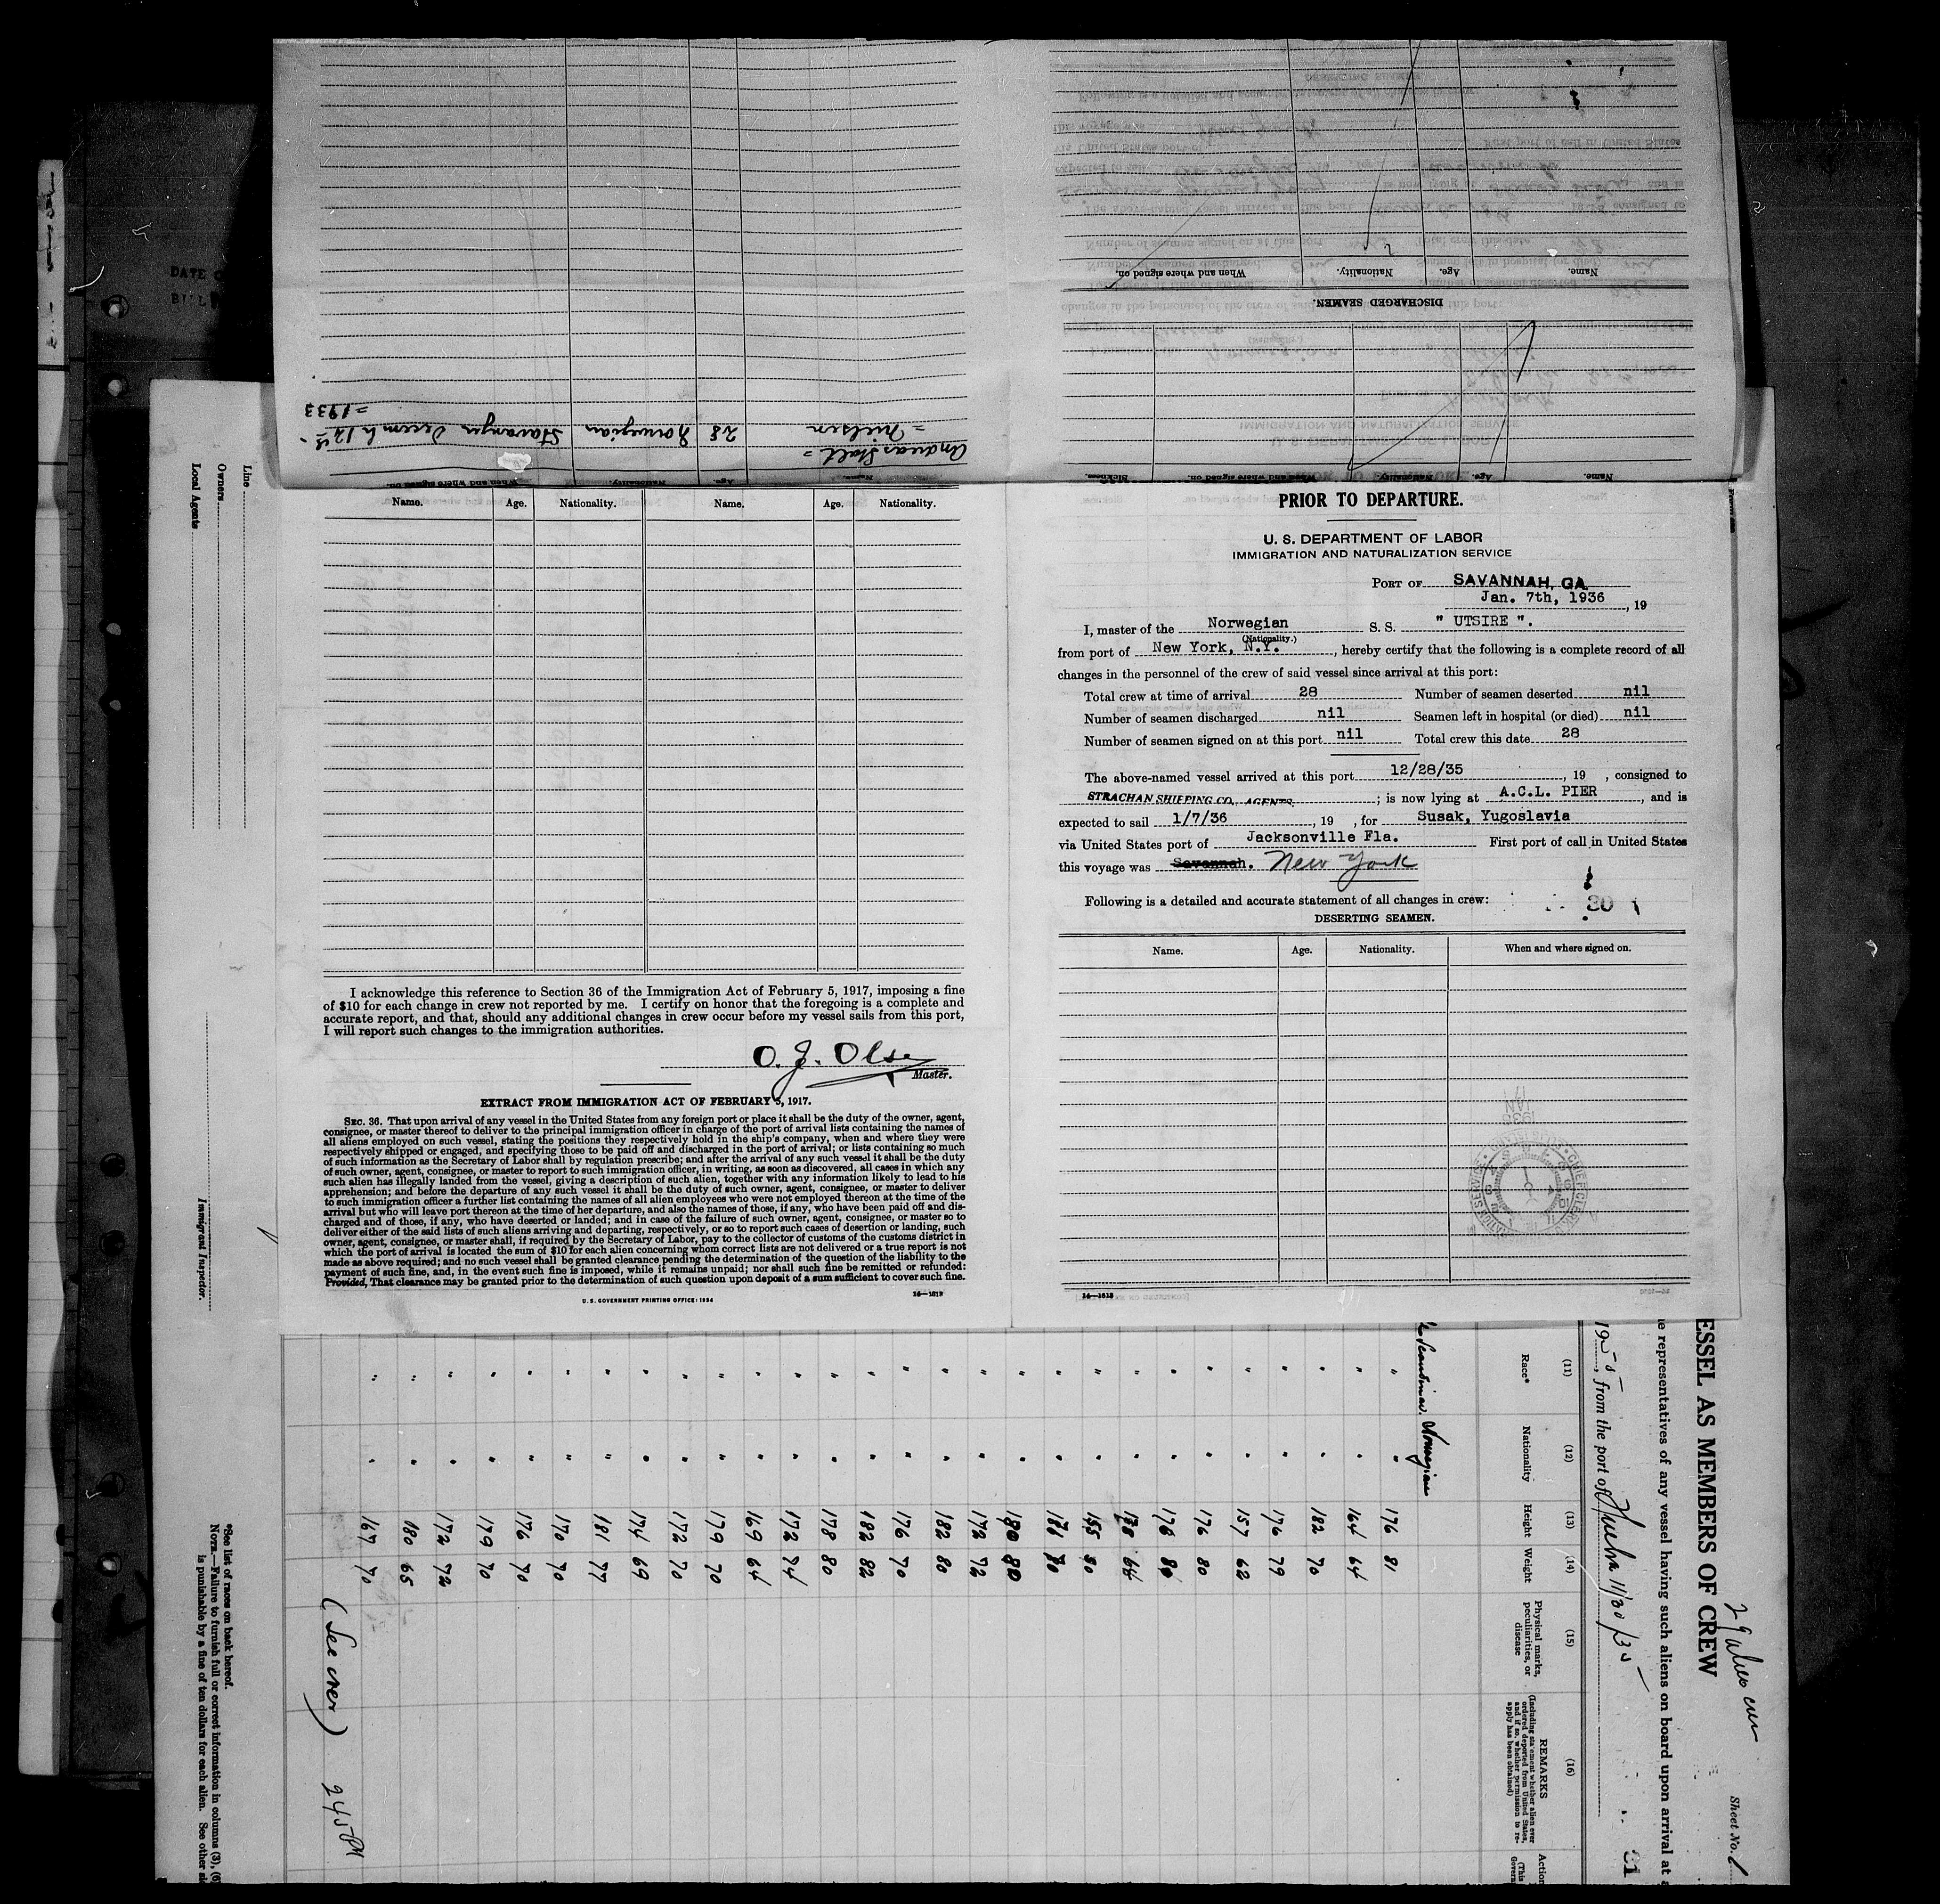 DISCHARGED SEAMEN.
Name. Age. Nationality. When and where signed on.
Name. Age. Nationality. When and where signed on. Sickness.
Andreas Stolt =
= Nielsen 28 Norwegian Stavanger Decemb 12
= 1933
Name. Age. Nationality. When and where signed on.
Name. Age. Nationality. Name. Age. Nationality.
I acknowledge this reference to Section 36 of the Immigration Act of February 5, 1917, imposing a fine
of $10 for each change in crew not reported by me. I certify on honor that the foregoing is a complete and
accurate report, and that, should any additional changes in crew occur before my vessel sails from this port,
I will report such changes to the immigration authorities.
O. J. Olsen
Master.
EXTRACT FROM IMMIGRATION ACT OF FEBRUARY 5, 1917.
SEC. 36. That upon arrival of any vessel in the United States from any foreign port or place it shall be the duty of the owner, agent,
consignee, or master thereof to deliver to the principal immigration officer in charge of the port of arrival lists containing the names of
all aliens employed on such vessel, stating the positions they respectively hold in the ship's company, when and where they were
respectively shipped or engaged, and specifying those to be paid off and discharged in the port of arrival; or lists containing so much
of such information as the Secretary of Labor shall by regulation prescribe; and after the arrival of any such vessel it shall be the duty
of such owner, agent, consignee, or master to report to such immigration officer, in writing, as soon as discovered, all cases in which any
such alien has illegally landed from the vessel, giving a description of such alien, together with any information likely to lead to his
apprehension; and before the departure of any such vessel it shall be the duty of such owner, agent, consignee, or master to deliver
to such immigration officer a further list containing the names of all alien employees who were not employed thereon at the time of the
arrival but who will leave port thereon at the time of her departure, and also the names of those, if any, who have been paid off and dis-
charged and of those, if any, who have deserted or landed; and in case of the failure of such owner, agent, consignee, or master so to
deliver either of the said lists of such aliens arriving and departing, respectively, or so to report such cases of desertion or landing, such
owner, agent, consignee, or master shall, if required by the Secretary of Labor, pay to the collector of customs of the customs district in
which the port of arrival is located the sum of $10 for each alien concerning whom correct lists are not delivered or a true report is not
made as above required; and no such vessel shall be granted clearance pending the determination of the question of the liability to the
payment of such fine, and, in the event such fine is imposed, while it remains unpaid; nor shall such fine be remitted or refunded:
Provided, That clearance may be granted prior to the determination of such question upon deposit of a sum sufficient to cover such fine.
U. S. GOVERNMENT PRINTING OFFICE: 1934
14—1613
PRIOR TO DEPARTURE.
U. S. DEPARTMENT OF LABOR
IMMIGRATION AND NATURALIZATION SERVICE
PORT OF SAVANNAH, GA.
Jan. 7th, 1936, 19
I, master of the Norwegian S. S. " UTSIRE ".
(Nationality.)
from port of New York, N.Y., hereby certify that the following is a complete record of all
changes in the personnel of the crew of said vessel since arrival at this port:
Total crew at time of arrival 28 Number of seamen deserted nil
Number of seamen discharged nil Seamen left in hospital (or died) nil
Number of seamen signed on at this port nil Total crew this date 28
The above-named vessel arrived at this port 12/28/35, 19 , consigned to
STRACHAN SHIPPING CO., AGENTS. ; is now lying at A.C.L. PIER, and is
expected to sail 1/7/36, 19 , for Susak, Yugoslavia
via United States port of Jacksonville Fla. First port of call in United States
this voyage was Savannah. New York
Following is a detailed and accurate statement of all changes in crew:
30
DESERTING SEAMEN.
Name. Age. Nationality. When and where signed on.
1936
JAN
17
14—1613
Line
Owners
Local Agents
Immigrant Inspector.
*See list of races on back hereof.
NOTE.—Failure to furnish full or correct information in columns (3), (6)
is punishable by a fine of ten dollars for each alien. See other si
29 aliens crew
Sheet No. 1
ESSEL AS MEMBERS OF CREW
e representatives of any vessel having such aliens on board upon arrival at a
, from the port of 11/30/35
31
(11) (12) (13) (14) (15) (16)
Race* Nationality Height Weight Physical marks, peculiarities, or disease REMARKS
(Including statement whether alien ever
ordered deported from United States,
and if so, whether permission to re-
apply has been obtained)
Action
(This
Govern
Scandinav. Norwegian
" " 176 81
" " 164 64
" " 182 70
" " 176 79
" " 157 62
" " 176 80
" " 178 80
" " 64
" " 155 50
" " 80
" " 180 80
" " 172 72
" " 182 80
" " 176 70
" " 182 82
" " 178 80
" " 172 74
" " 169 64
" " 179 70
" " 172 70
" " 174 69
" " 181 77
" " 170 70
" " 176 70
" " 179 70
" " 172 72
" " 180 65
" " 167 70
(See over) 245 PM